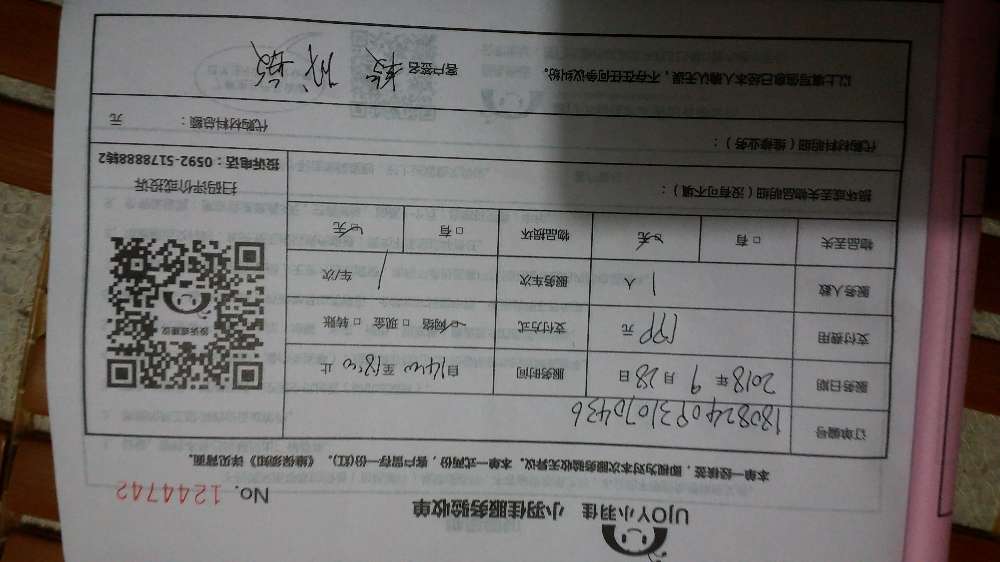 UJOY小羽佳 小羽佳服务验收单
No. 1244742
本单一经核签，即视为对本次服务验收无异议。本单一式两份，客户留存一份(红)。《维保须知》详见背面。
订单编号 1808240931070436
服务日期 2018年9月28日 服务时间 自14:00至18:00止
支付费用 元 支付方式 网络 □现金 □转账
服务人数 1人 服务车次 1 车/次
物品丢失 □有 无 物品损坏 □有 无
投诉或建议
扫码评价或投诉
投诉电话：0592-5178888转2
损坏或丢失物品明细（没有可不填）：
代购材料明细（维修业务）：
代购材料总额： 元
以上填写信息已经本人确认无误，不存在任何争议纠纷。
客户签名